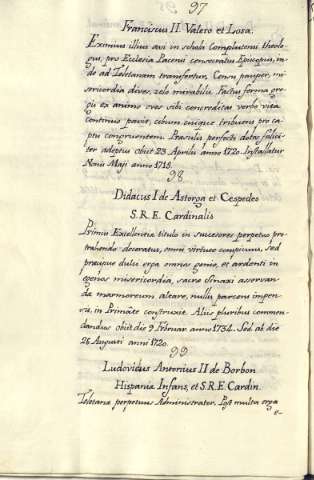 97
Franciscus II. Valero et Losa.
Eximius illius aevi in schola Complutensi theolo-
gus, pro Ecclesia Pacensi consecratus Episcopus, in-
de ad Toletanam transfertur. Corn pauper, mi-
sericordia dives, zelo mirabilis. Factus forma gre-
gis ex animo oves sibi concreditas verbo vitae
continuo pavit, cibum unique tribuens pro ca-
ptu congruentem. Praesulis perfecti dotes felici-
ter adeptus obiit 23 Aprilis anno 1720. Installatur
Nonis Maji anno 1715.
98
Didacus I de Astorga et Cespedes
S.R.E. Cardinalis
Primus Excellentiae titulo in succesores perpetuo pro-
trahendo decoratus, omni virtute conspicuus, sed
praecipue dulci erga omnes genio, et ardenti in
egenos misericordia, sacrae Sinaxi asservan-
dae marmoreum altare, nulli parcens impen-
sae, in Primate construxit. Aliis pluribus commen-
dandus obiit die 9 Februar. anno 1734. Sed. ab die
26 Augusti anni 1720.
99
Ludovicus Antonius II de Borbon
Hispaniae Infans, et S.R.E. Cardin.
Toletanae perpetuus Administrator. Post multa erga